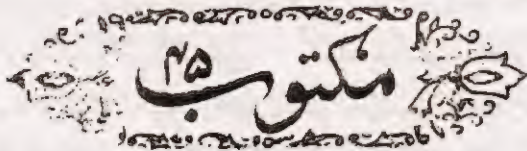 مکتوب ۴۵